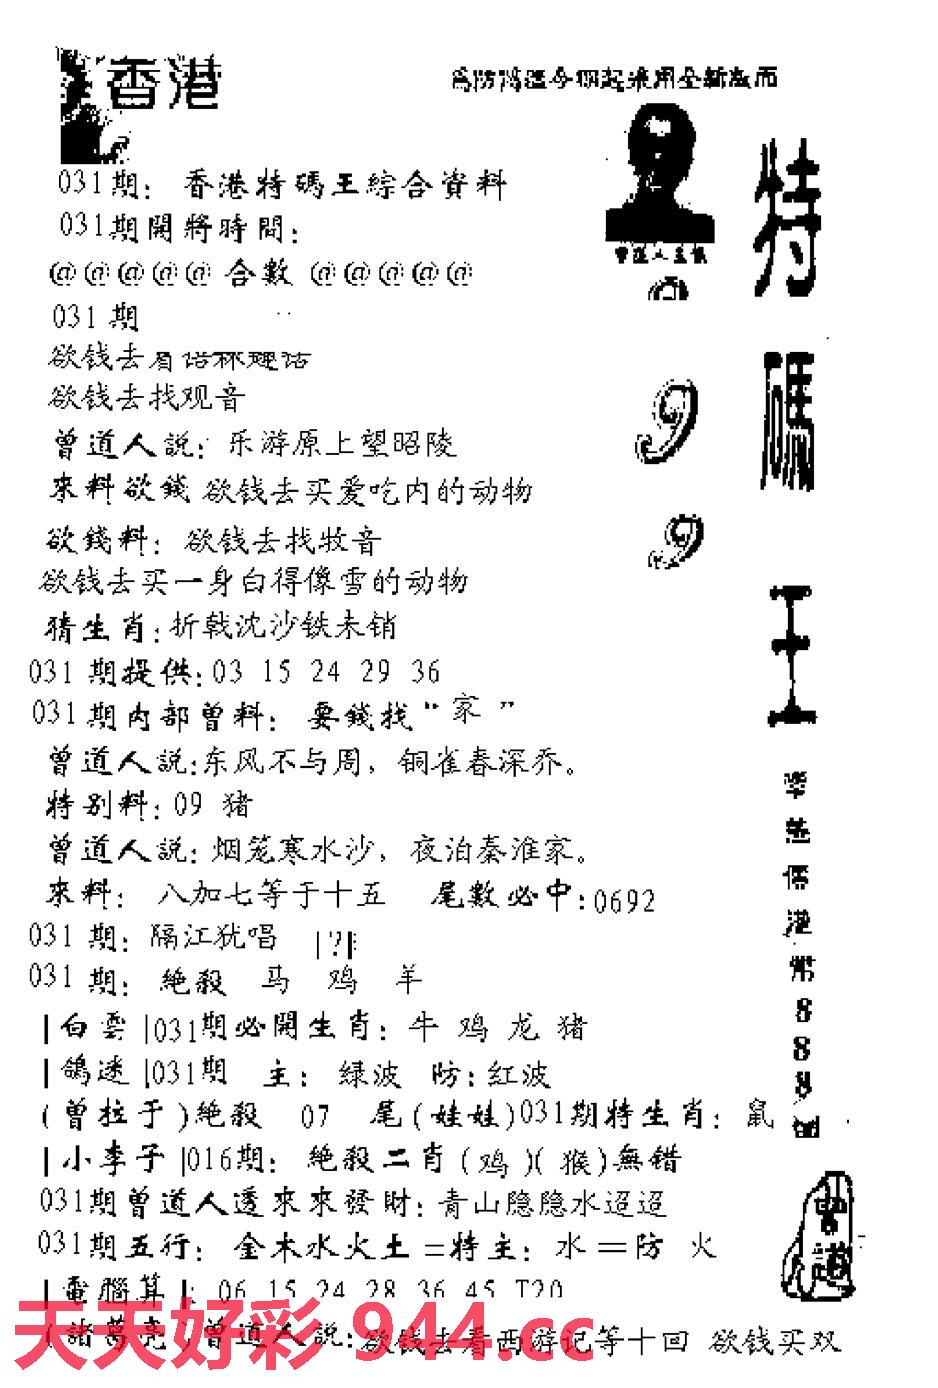 香港
特碼王
031期：香港特碼王綜合資料
031期開將時間：
@@@@@合數@@@@@
031期
欲钱去
欲钱去找观音
曾道人説：乐游原上望昭陵
來料欲錢 欲钱去买爱吃内的动物
欲錢料：欲钱去找牧音
欲钱去买一身白得像雪的动物
猜生肖：折戟沈沙铁未销
031期提供：03 15 24 29 36
031期内部曾料：要錢找“家”
曾道人説：东风不与周，铜雀春深乔。
特别料：09 猪
曾道人説：烟笼寒水沙，夜泊秦淮家。
來料：八加七等于十五 尾數必中：0692
031期：隔江犹唱 |?|
031期：絶殺 马 鸡 羊
|白雲|031期必開生肖：牛 鸡 龙 猪
|鴿迷|031期 主：绿波 防：红波
(曾拉于)絶殺 07 尾(娃娃)031期特生肖：鼠
|小李子|016期：絶殺二肖(鸡)(猴)無錯
031期曾道人透來來發財：青山隐隐水迢迢
031期五行：金木水火土=特主：水=防 火
|電腦算|：06 15 24 28 36 45 T20
(諸葛亮)曾道人説：欲钱去看西游记等十回 欲钱买双
99
港幣888
曾道
天天好彩 944.cc